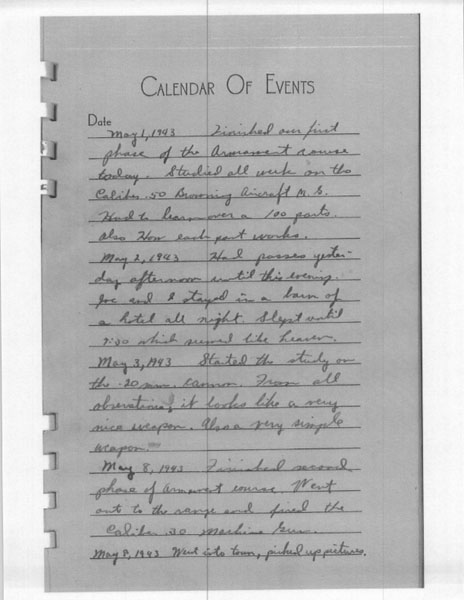 CALENDAR OF EVENTS
Date
May 1, 1943 Finished our first
phase of the Armament course
today. Studied all week on the
Caliber .50 Browning Aircraft M. G.
Had to learn over a 100 parts.
Also How each part works.
May 2, 1943 Had passes yester-
day afternoon until this evening.
Joe and I stayed in a barn of
a hotel all night. Slept until
7:30 which seemed like heaven.
May 3, 1943 Started the study on
the 20 mm. cannon. From all
observations, it looks like a very
nice weapon. Also a very simple
weapon.
May 8, 1943 Finished second
phase of Armament course. Went
out to the range and fired the
Caliber .30 Machine Gun.
May 9, 1943 Went into town, picked up pictures.